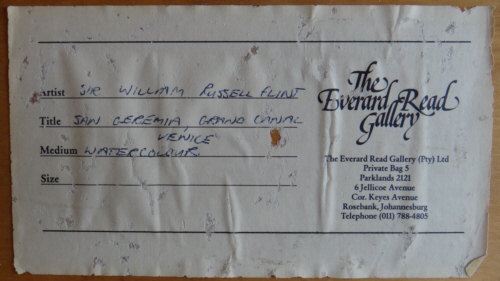 Artist SIR WILLIAM RUSSELL FLINT
Title SAN GEREMIA, GRAND CANAL
VENICE
Medium WATERCOLOUR
Size
The
Everard Read
Gallery
The Everard Read Gallery (Pty) Ltd
Private Bag 5
Parklands 2121
6 Jellicoe Avenue
Cor. Keyes Avenue
Rosebank, Johannesburg
Telephone (011) 788-4805